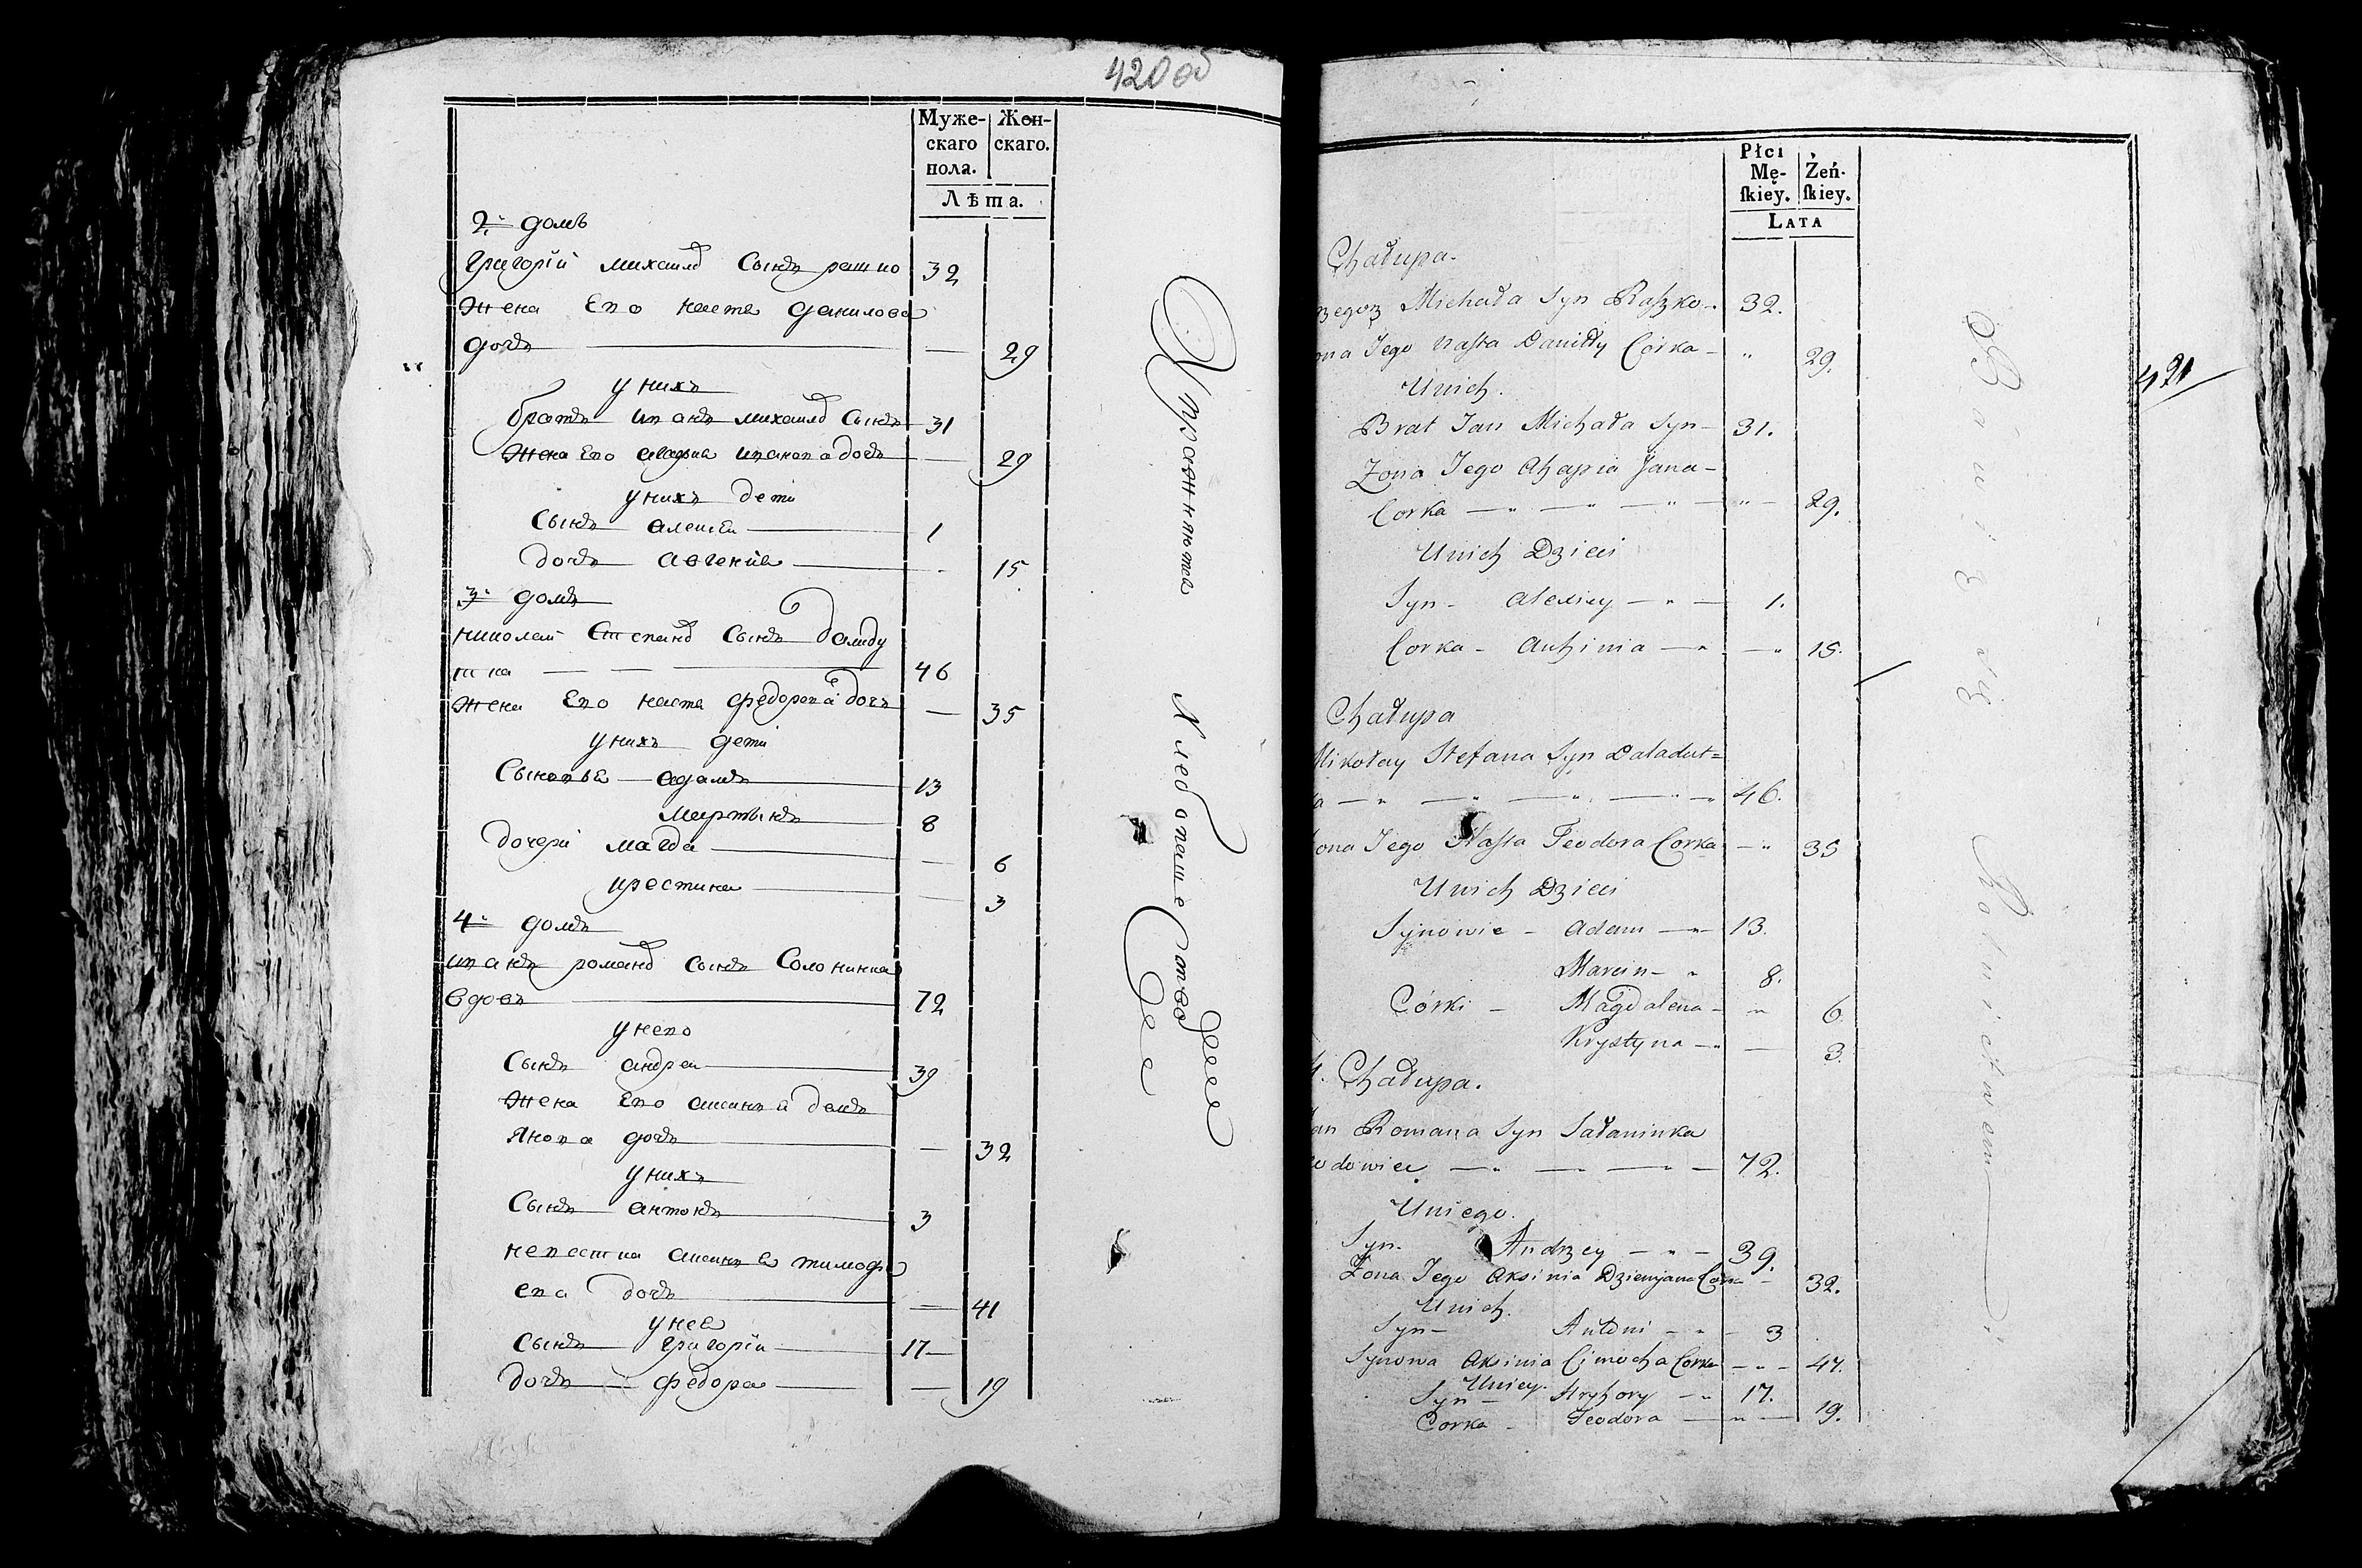 420 об
Муже-
скаго
пола.
Жен-
скаго.
Лѣта.
2. домъ
Григорій михаила Сынъ рашко 32
Жена Его наста данилова
дочь — 29
у нихъ
братъ иванъ михаила Сынъ 31
Жена Его агафия иванова дочь — 29
у нихъ дети
Сынъ алексеи 1
дочь авгения 15
3. домъ
николаи Степана Сынъ даладу
тка 46
Жена Его наста федорова дочь — 35
у нихъ дети
Сыновья адамъ 13
мартынъ 8
дочери магда — 6
кристина 3
4. домъ
иванъ романа Сынъ Солонинка
вдовъ 72
у него
Сынъ андреи 39
Жена Его аксинья демь
янова дочь — 32
у нихъ
Сынъ антонъ 3
невестка аксинья тимофе
ева дочь — 41
у нея
Сынъ григории 17
дочь федора — 19
Упражняются
Хлебопашество
421
Płci
Mę-
ſkiey.
Żeń-
ſkiey.
LATA
Chałupa.
rzegorz Michała Syn Raszko 32.
ona Jego Nasta Daniłły Córka " 29.
U nich.
Brat Jan Michała Syn 31.
Żona Jego Ahapia Jana
Corka 29.
U nich Dzieci
Syn - Alexiey 1.
Corka - Auhinia 15.
Chałupa
Mikołay Stefana Syn Daładut=
a 46.
ona Jego Nasta Teodora Corka 35
U nich Dzieci
Synowie - Adam 13.
Marcin 8.
Córki - Magdalena 6.
Krystyna 3.
4. Chałupa.
an Romana Syn Sałaninka
wdowiec 72.
U niego.
Syn - Andrzey 39.
Żona Jego Aksinia Dziemjana Corka 32.
U nich.
Syn - Antoni 3
Synowa Aksinia Cimocha Corka 41.
U niey.
Syn - Hryhory 17.
Corka - Teodora 19.
Bawią się
Rolnictwem